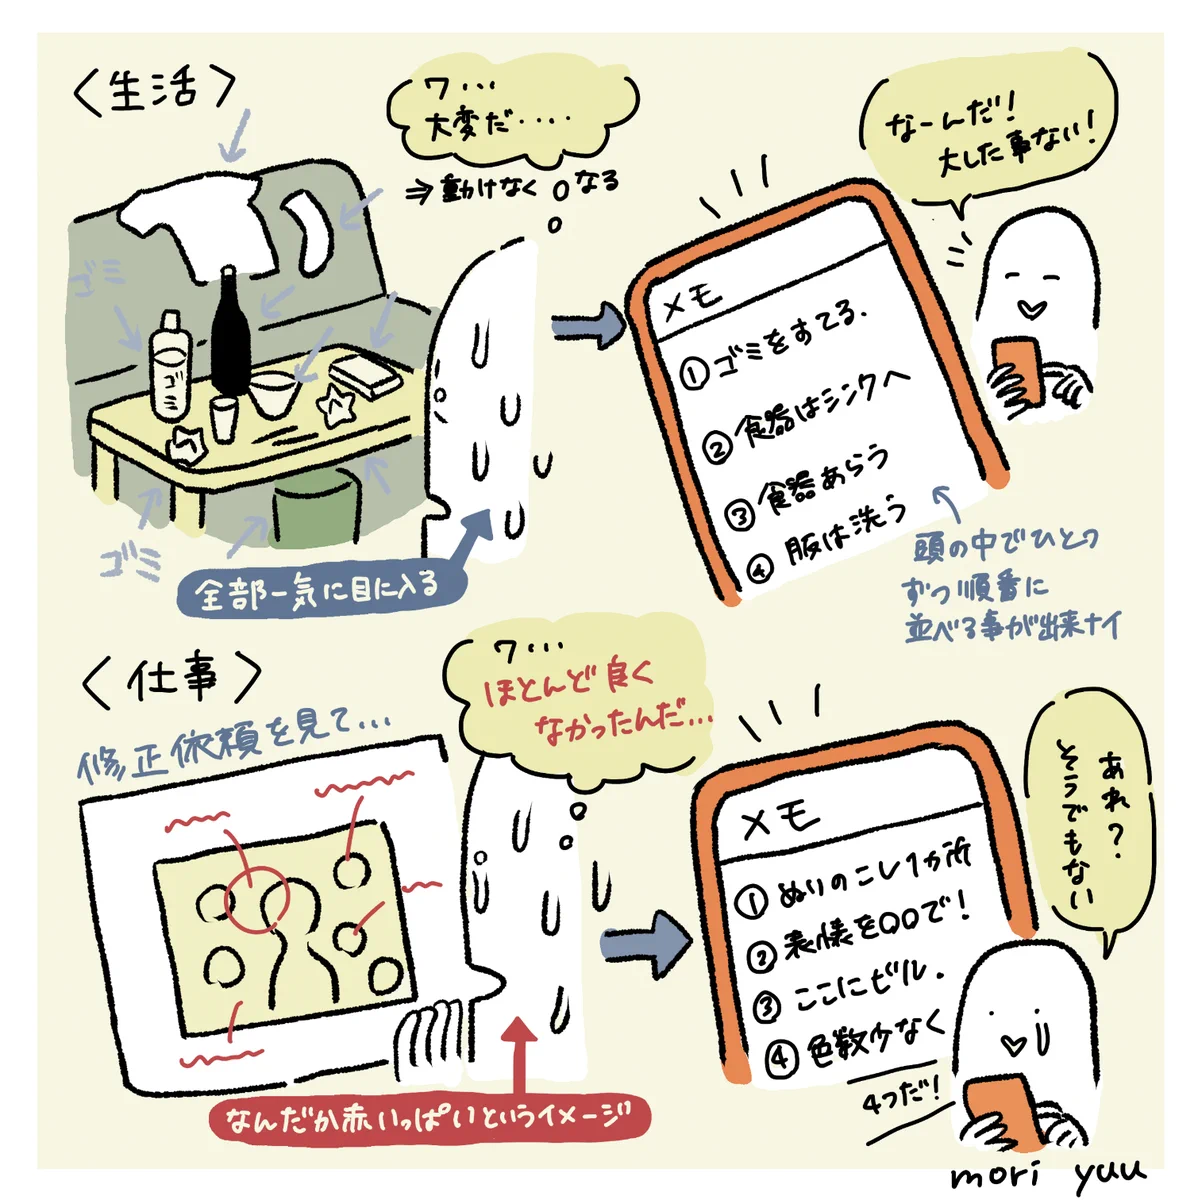 〈生活〉
ワ…
大変だ‥‥
⇒動けなくなる
ゴミ
ゴミ
ゴミ
全部一気に目に入る
メモ
①ゴミをすてる.
②食器はシンクへ
③食器あらう
④服は洗う
なーんだ!
大した事ない!
頭の中でひとつ
ずつ順番に
並べる事が出来ナイ
〈仕事〉
修正依頼を見て…
ワ…
ほとんど良く
なかったんだ…
なんだか赤いっぱいというイメージ
メモ
①ぬりのこし1ヵ所
②表情を○○で!
③ここにビル.
④色数少なく
4つだ!
あれ?
そうでもない
mori yuu